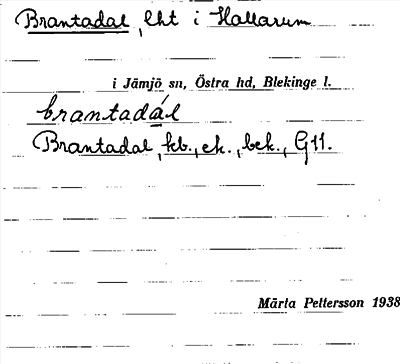 Brantadal, lht i Hallarum
i Jämjö sn, Östra hd, Blekinge l.
brantadál
Brantadal, kb., ek., bek., G11.
Märta Pettersson 1938